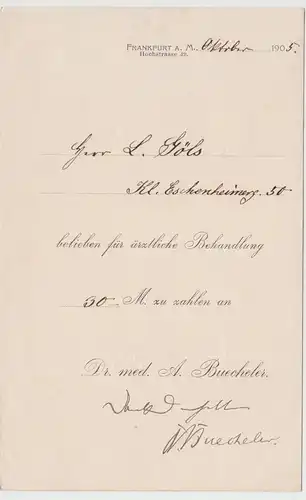 FRANKFURT A. M., Oktober 1905.
Hochstrasse 29.
Herr L. Göls
Kl. Eschenheimerg. 50
belieben für ärztliche Behandlung
30 M. zu zahlen an
Dr. med. A. Buecheler.
Dank
A Buecheler.